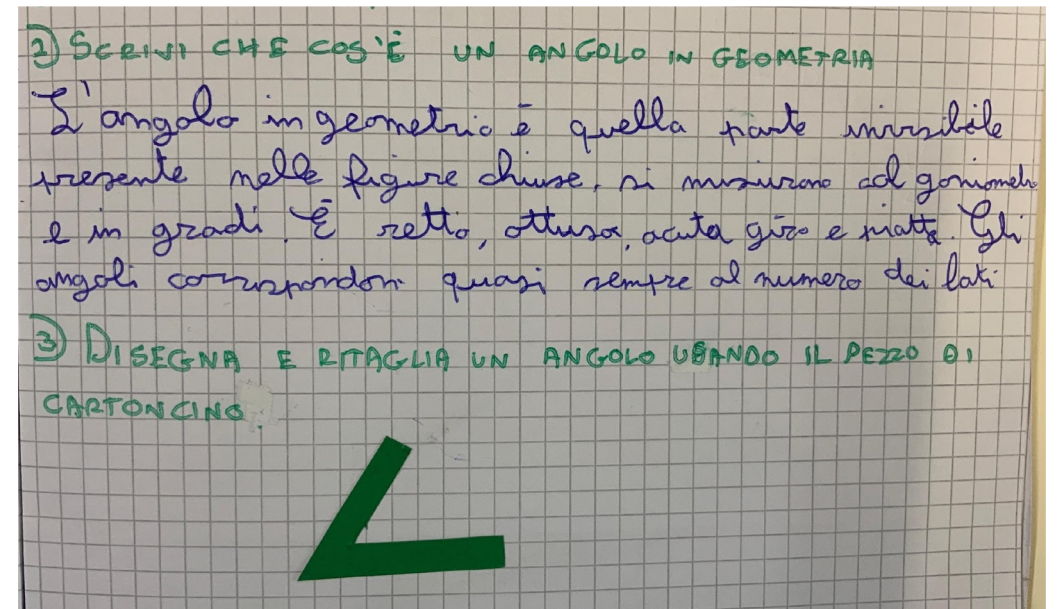 2) SCRIVI CHE COS'È UN ANGOLO IN GEOMETRIA
L'angolo in geometria è quella parte invisibile
presente nelle figure chiuse, si misurano col goniometro
e in gradi. È retto, ottuso, acuto giro e piatto. Gli
angoli corrispondon quasi sempre al numero dei lati
3) DISEGNA E RITAGLIA UN ANGOLO USANDO IL PEZZO DI
CARTONCINO.